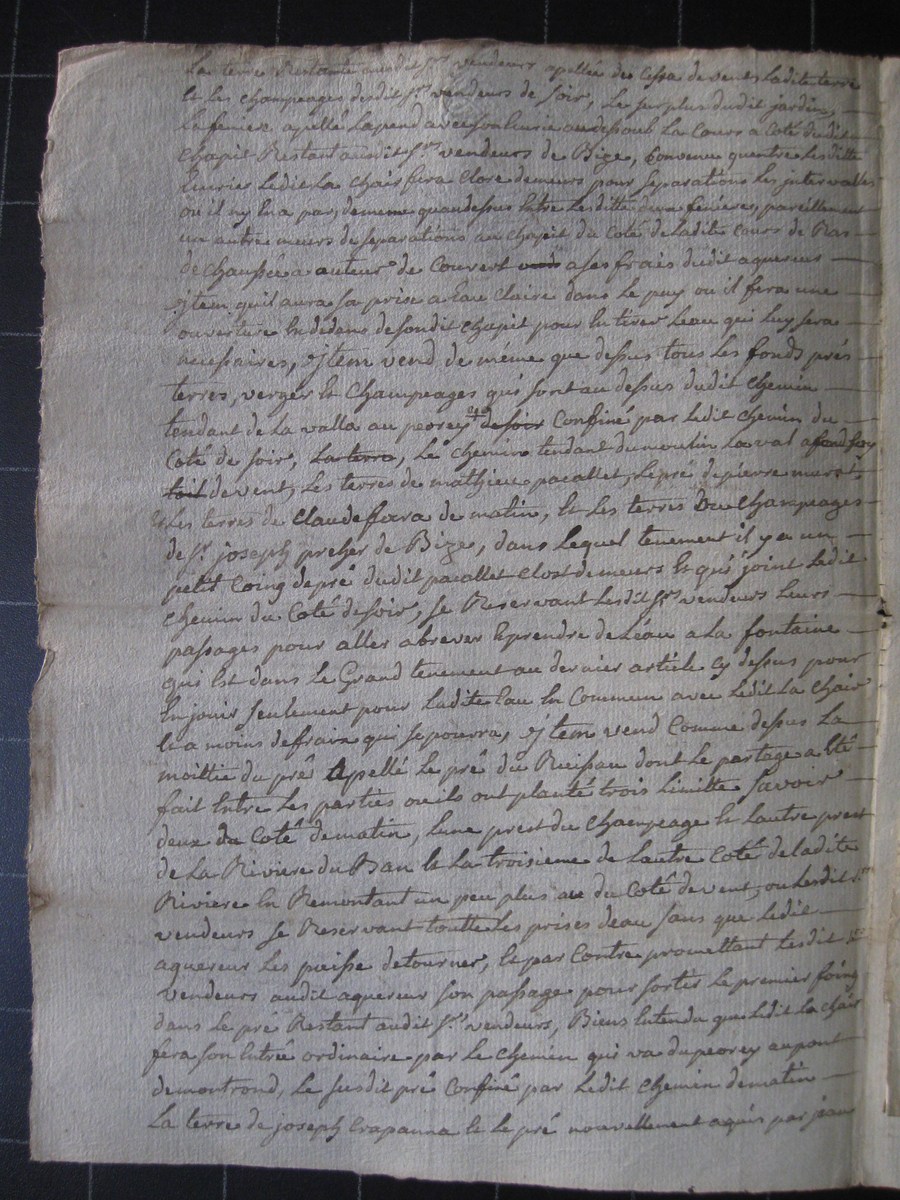 La terre Restante audit Srs vendeurs apellée de Cessa de vent, Ladite terre
Et les champeages dudit Srs vendeurs de soir, Le surplus dudit jardin,
La feniere apellé Lapend avec son Ecurie au dessoub La Cours a Coté dudit
Chapit Restant audit Srs vendeurs de Bize, Convenu quentre Lesditte
Ecuries Ledit La Chair fera Clore de meurs pour separations Les intervalles
ou il ny En a pas, de meme que dessus Entre Lesditte deux fenieres, pareillement
un autre meurs de separations au Chapit du Coté de Ladite Cours de Ras
de Chaussée a auteur de Couvert a ses frais dudit aquereur
jtem quil aura sa prise a Eau Claire dans Le puy ou il fera une
ouverture En dedans de son dit Chapit pour En tirer Leau qui Luy sera
necessaires, jtem vend de même que dessus tous Les fonds prés
terres, verger Et Champeages qui sont au dessus dudit Chemin
tendant de La valla au peorey Et de soir Confiné par Ledit Chemin du
Coté de soir, La terre, Le Chemin tendant du moulin La val a
de vent, Les terres de mathieu pacallet, Le pré de pierre
Les terres de Claude ffara de matin, Et Les terres Ou Champeages
de Sr joseph preher de Bize, dans Lequel tenement il y a un
petit Coing de pré dudit pacallet Clost de meurs Et qui joint Ledit
Chemin du Coté de soir, se Reservant Lesdit Srs vendeurs Leurs
passages pour aller abrever Et prendre de Léau a La fontaine
qui Est dans Le Grand tenement au dernier article Cy dessus pour
En jouir seulement pour Ladite Eau En Commun avec Ledit La Chair
Et a moins de fraix qui se pourra, jtem vend Comme dessus La
moittie du pré Apellé Le pré du Ruissau dont Le partage a Eté
fait Entre Les parties ou ils ont planté trois Limitte Savoir
deux du Coté de matin, Lune prest du Champeage Et Lautre prest
de La Riviere du Ban Et La troisieme de Lautre Coté de Ladite
Riviere En Remontant un peu plus au du Coté de vent, ou Lesdit Srs
vendeurs se Reservant toutte Les prises deau sans que Ledit
aquereur Les puisse detourner, Et par Contre promettant Lesdit Srs
vendeurs audit aquereur son passage pour sortir Le premier foing
dans Le pré Restant audit Srs vendeurs, Biens Entendu que Ledit La Chair
fera son Entré ordinaire par Le Chemin qui va du peorey au pont
de montrond, Le susdit pré Confiné par Ledit Chemin de matin
La terre de joseph Crapanna Et Le pré nouvellement aquis par jean